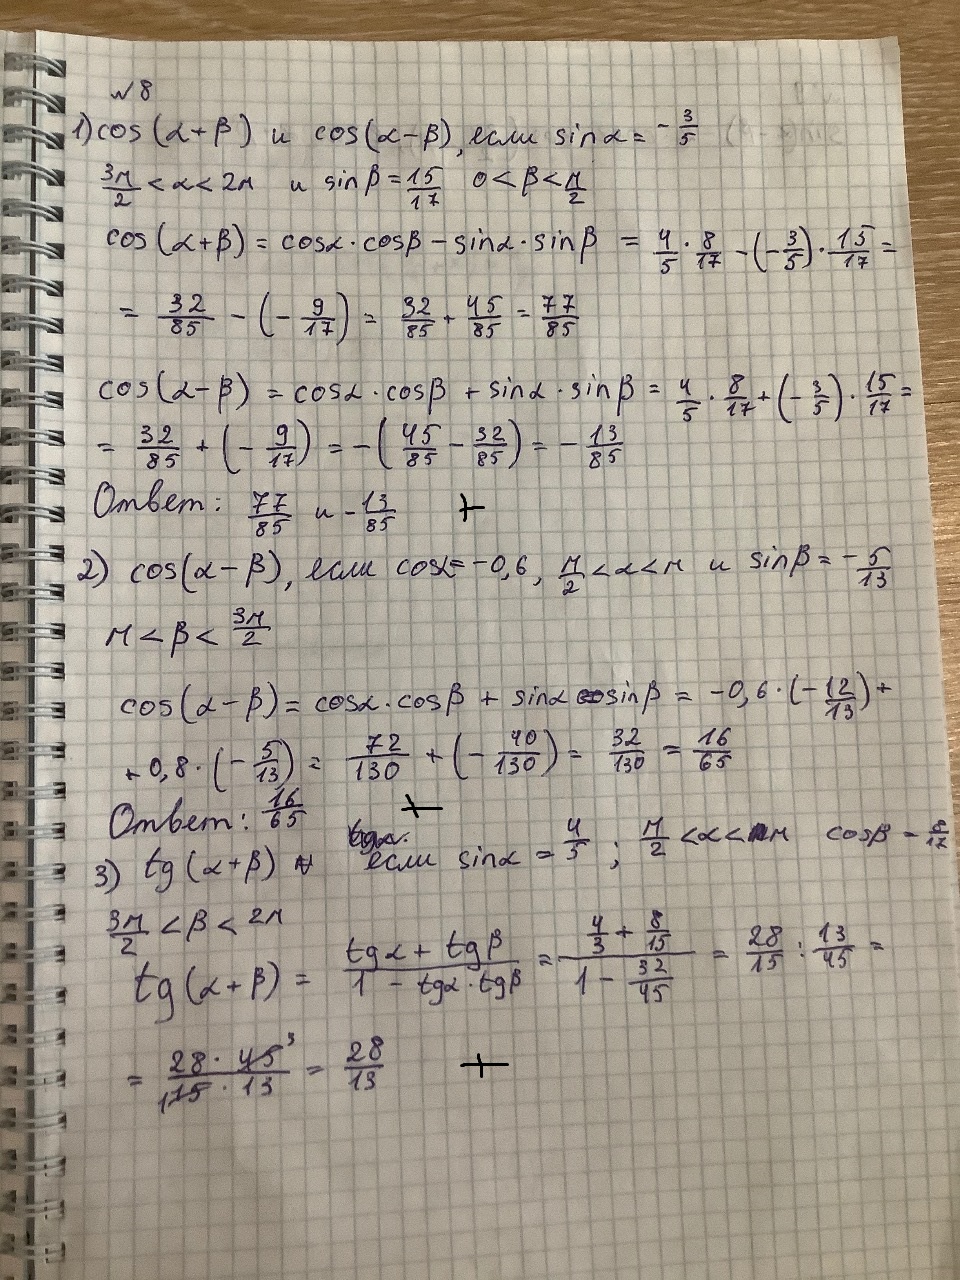 №8
1) cos(α+β) и cos(α−β), если sinα = −3/5
3π/2 < α < 2π и sinβ = 15/17 0 < β < π/2
cos(α+β) = cosα·cosβ − sinα·sinβ = 4/5 · 8/17 − (−3/5) · 15/17 =
= 32/85 − (−9/17) = 32/85 + 45/85 = 77/85
cos(α−β) = cosα·cosβ + sinα·sinβ = 4/5 · 8/17 + (−3/5) · 15/17 =
= 32/85 + (−9/17) = −(45/85 − 32/85) = −13/85
Ответ: 77/85 и −13/85 +
2) cos(α−β), если cosα = −0,6, π/2 < α < π и sinβ = −5/13
π < β < 3π/2
cos(α−β) = cosα·cosβ + sinα sinβ = −0,6 · (−12/13) +
+ 0,8 · (−5/13) = 72/130 + (−40/130) = 32/130 = 16/65
Ответ: 16/65 +
3) tg(α+β) если sinα = 4/5; π/2 < α < π cosβ = 8/17
3π/2 < β < 2π
tg(α+β) = (tgα + tgβ)/(1 − tgα·tgβ) = (4/3 + 8/15)/(1 − 32/45) = 28/15 : 13/45 =
= (28 · 45³)/(₁15 · 13) = 28/13 +